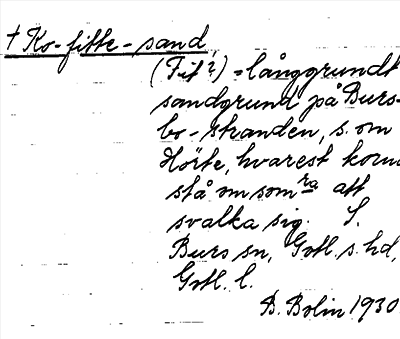 † Ko-fitte-sand,
(Fif?) = långgrundt
sandgrund på Burs-
bo-stranden, s. om
Hörte, hvarest korna
stå om somra att
svalka sig. S.
Burs sn, Gotl. s. hd,
Gotl. l.
B. Bolin 1930.